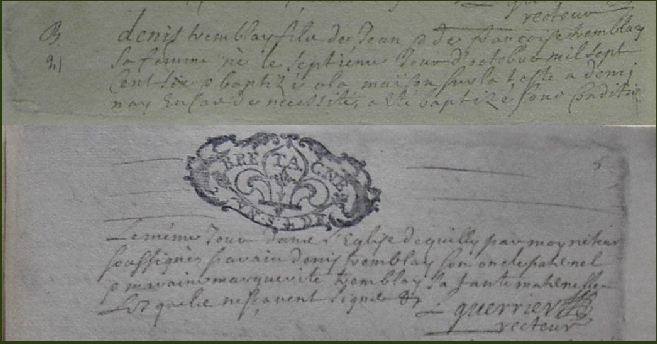 recteur
B.
denis tremblay fils de Jean & de françoise tremblay
sa femme né le septième Jour d'octobre mil sept
cent six & baptizé a la maison sur la teste a demi
nay En Cas de nécessité, a esté baptizé sous conditio
BRETAGNE
DE
Le même Jour dans l'Eglise de quilly par moy recteur
soussigné parain denis tremblay son oncle paternel
& maraine marguerite tremblay sa tante maternelle
Lesquels ne sçavent signer
guerrier
recteur